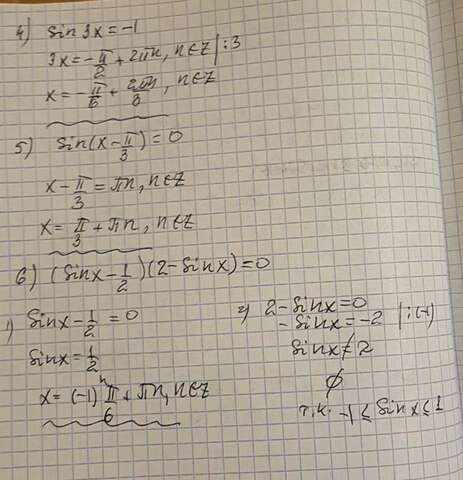 4) sin 3x = -1
3x = -π/2 + 2πn, n∈Z | :3
x = -π/6 + 2πn/3, n∈Z
5) sin(x - π/3) = 0
x - π/3 = πn, n∈Z
x = π/3 + πn, n∈Z
6) (sinx - 1/2)(2 - sinx) = 0
1) sinx - 1/2 = 0
sinx = 1/2
x = (-1)ⁿ π/6 + πn, n∈Z
2) 2 - sinx = 0
- sinx = -2 | :(-1)
sinx ≠ 2
∅
т.к. -1 ≤ sinx ≤ 1